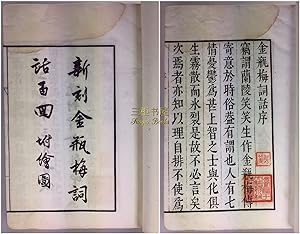 新刻金瓶梅詞
話百回 坿繪圖
金瓶梅詞話序
竊謂蘭陵笑笑生作金瓶梅傳
寄意於時俗蓋有謂也人有七
情憂鬱為甚上智之士與化俱
生霧散而冰裂是故不必言矣
次焉者亦知以理自排不使為